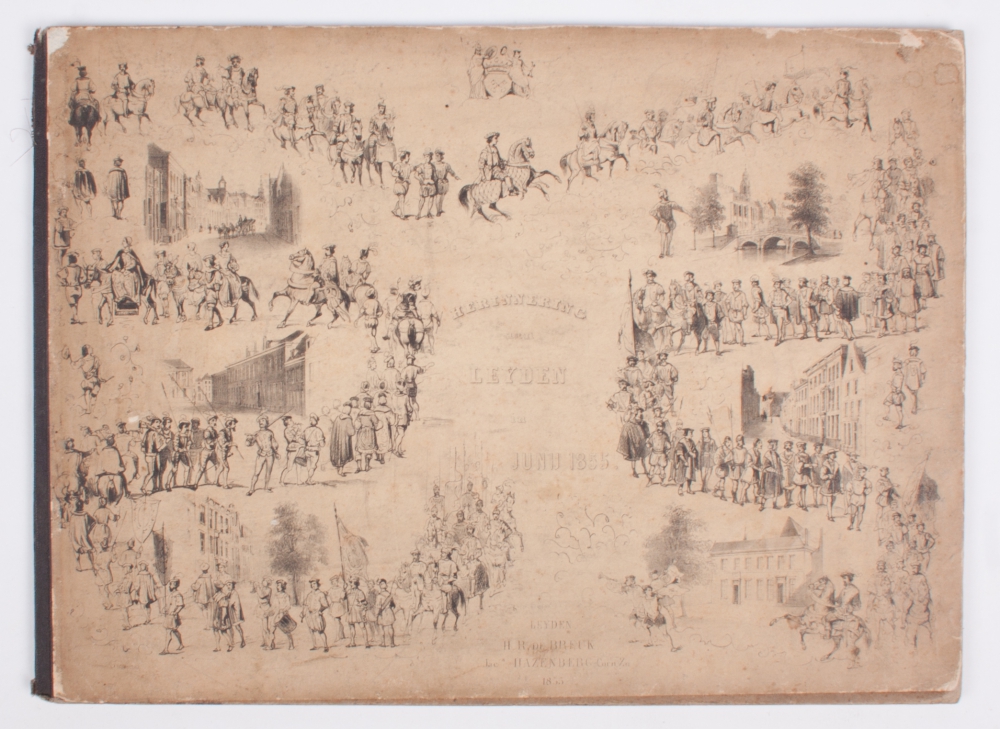 HERINNERING
LEYDEN
JUNIJ 1855.
LEYDEN
H. H. DE BREUK
HAZENBERG
1855